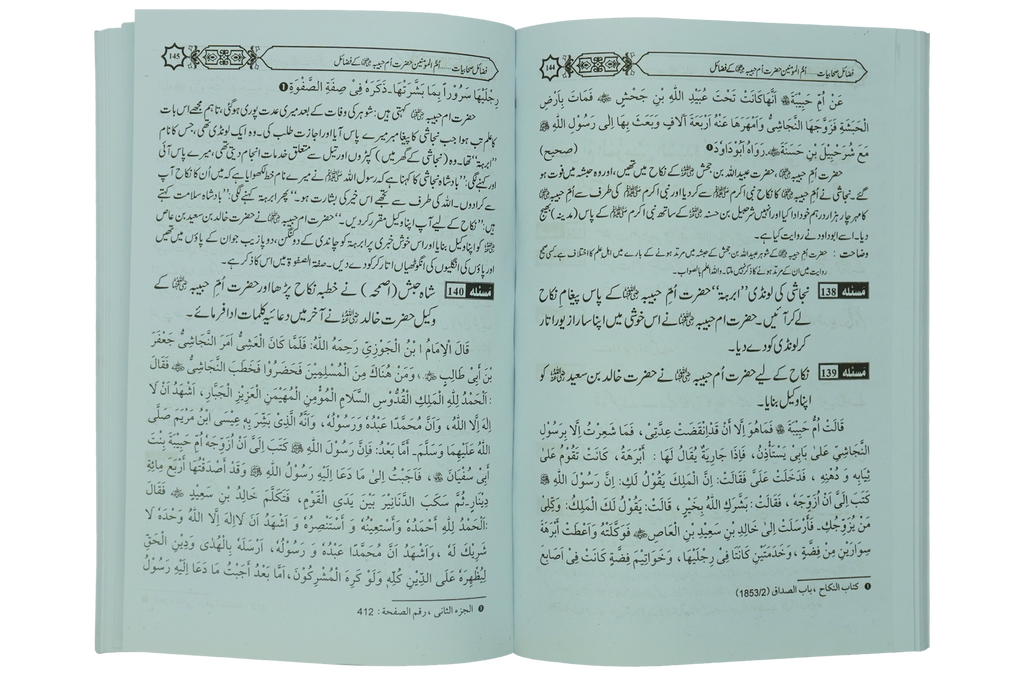 فضائل صحابیات ___ اُمّ المؤمنین حضرت اُم حبیبہ ؓ کے فضائل
144
عَنْ اُمِّ حَبِيْبَةَ ؓ اَنَّهَا كَانَتْ تَحْتَ عُبَيْدِ اللّٰهِ بْنِ جَحْشٍ ؓ فَمَاتَ بِاَرْضِ
الْحَبَشَةِ فَزَوَّجَهَا النَّجَاشِيُّ وَاَمْهَرَهَا عَنْهُ اَرْبَعَةَ آلَافٍ وَبَعَثَ بِهَا اِلٰى رَسُوْلِ اللّٰهِ ﷺ
مَعَ شُرَحْبِيْلَ بْنِ حَسَنَةَ ؓ. رَوَاهُ اَبُوْدَاوٗدَ ❶ (صحيح)
حضرت اُم حبیبہ ؓ، حضرت عبیداللہ بن جحش ؓ کے نکاح میں تھیں، اور وہ حبشہ میں فوت ہو
گئے۔ نجاشی نے اُمِّ حبیبہ ؓ کا نکاح نبی اکرم ﷺ سے کر دیا اور نبی اکرم ﷺ کی طرف سے اُمِّ حبیبہ ؓ
کا مہر چار ہزار درہم خود ادا کیا اور انہیں شرحبیل بن حسنہ ؓ کے ساتھ نبی اکرم ﷺ کے پاس (مدینہ) بھیج
دیا۔ اسے ابوداود نے روایت کیا ہے۔
وضاحت : حضرت اُم حبیبہ ؓ کے شوہر عبیداللہ بن جحش کے حبشہ میں مرتد ہونے کے بارے میں اہل علم کا اختلاف ہے۔ کسی صحیح
روایت میں ان کے مرتد ہونے کا ذکر نہیں ملتا۔ واللہ اعلم بالصواب۔
مسئلہ 138 نجاشی کی لونڈی ”ابرہہ“ حضرت اُمّ حبیبہ ؓ کے پاس پیغام نکاح
لے کر آئیں۔ حضرت ام حبیبہ ؓ نے اس خوشی میں اپنا سارا زیور اتار
کر لونڈی کو دے دیا۔
مسئلہ 139 نکاح کے لیے حضرت اُم حبیبہ ؓ نے حضرت خالد بن سعید ؓ کو
اپنا وکیل بنایا۔
قَالَتْ اُمُّ حَبِيْبَةَ ؓ فَمَا هُوَ اِلَّا اَنْ قَدِ انْقَضَتْ عِدَّتِىْ، فَمَا شَعِرْتُ اِلَّا بِرَسُوْلِ
النَّجَاشِيِّ عَلٰى بَابِىْ يَسْتَأْذِنُ، فَاِذَا جَارِيَةٌ يُقَالُ لَهَا : اَبْرَهَةُ، كَانَتْ تَقُوْمُ عَلٰى
ثِيَابِهٖ وَ دُهْنِهٖ، فَدَخَلَتْ عَلَىَّ فَقَالَتْ: اِنَّ الْمَلِكَ يَقُوْلُ لَكِ: اِنَّ رَسُوْلَ اللّٰهِ ﷺ
كَتَبَ اِلَىَّ اَنْ اُزَوِّجَهُ، فَقَالَتْ: بَشَّرَكِ اللّٰهُ بِخَيْرٍ، قَالَتْ: يَقُوْلُ لَكِ الْمَلِكُ: وَكِّلِىْ
مَنْ يُّزَوِّجُكِ. فَاَرْسَلَتْ اِلٰى خَالِدِ بْنِ سَعِيْدِ بْنِ الْعَاصِ ؓ فَوَكَّلَتْهُ وَاَعْطَتْ اَبْرَهَةَ
سِوَارَيْنِ مِنْ فِضَّةٍ ، وَخَدَمَتَيْنِ كَانَتَا فِىْ رِجْلَيْهَا، وَخَوَاتِيْمَ فِضَّةٍ كَانَتْ فِىْ اَصَابِعِ
❶ كتاب النكاح ، باب الصداق (1853/2)
فضائل صحابیات ___ اُمّ المؤمنین حضرت اُم حبیبہ ؓ کے فضائل
145
رِجْلَيْهَا سُرُوْراً بِمَا بَشَّرَتْهَا۔ ذَكَرَهٗ فِىْ صِفَةِ الصَّفْوَةِ ❶
حضرت ام حبیبہ ؓ کہتی ہیں: شوہر کی وفات کے بعد میری عدت پوری ہوگئی، تاہم مجھے اس بات
کا علم تب ہوا جب نجاشی کا پیغامبر میرے پاس آیا اور اجازت طلب کی۔ وہ ایک لونڈی تھی، جس کا نام
”ابرہہ“ تھا۔ وہ (نجاشی کے گھر میں) کپڑوں اور تیل سے متعلق خدمات انجام دیتی تھی، میرے پاس آئی
اور کہنے لگی: ”بادشاہ نجاشی کا کہنا ہے کہ رسول اللہ ﷺ نے میرے نام خط لکھوایا ہے کہ میں اُن کا نکاح آپ
سے کرادوں۔ اللہ کی طرف سے تجھے اس خیر کی بشارت ہو۔“ پھر ابرہہ کہنے لگی: ”بادشاہ سلامت کہتے
ہیں: ”نکاح کے لیے آپ اپنا وکیل مقرر کر دیں۔“ حضرت ام حبیبہ ؓ نے حضرت خالد بن سعید بن عاص
ؓ کو اپنا وکیل بنایا اور اس خوش خبری پر ابرہہ کو چاندی کے دو کنگن، دو پازیب جو ان کے پاؤں میں تھیں
اور پاؤں کی انگلیوں کی انگوٹھیاں اُتار کر دے دیں۔ صفۃ الصفوۃ میں اس کا ذکر ہے۔
مسئلہ 140 شاہ حبش (اصحمہ) نے خطبہ نکاح پڑھا اور حضرت اُمّ حبیبہ ؓ کے
وکیل حضرت خالد ؓ نے آخر میں دعائیہ کلمات ادا فرمائے۔
قَالَ الْاِمَامُ ابْنُ الْجَوْزِيْ رَحِمَهُ اللّٰهُ: فَلَمَّا كَانَ الْعَشِىُّ اَمَرَ النَّجَاشِيُّ جَعْفَرَ
بْنَ اَبِىْ طَالِبٍ ؓ، وَمَنْ هُنَاكَ مِنَ الْمُسْلِمِيْنَ فَحَضَرُوْا فَخَطَبَ النَّجَاشِيُّ ؓ فَقَالَ
:اَلْحَمْدُ لِلّٰهِ الْمَلِكِ الْقُدُّوْسِ السَّلَامِ الْمُؤْمِنِ الْمُهَيْمِنِ الْعَزِيْزِ الْجَبَّارِ، اَشْهَدُ اَنْ لَّا
اِلٰهَ اِلَّا اللّٰهُ، وَاَنَّ مُحَمَّدًا عَبْدُهُ وَرَسُوْلُهُ، وَاَنَّهُ الَّذِىْ بَشَّرَ بِهٖ عِيْسَى ابْنُ مَرْيَمَ صَلَّى
اللّٰهُ عَلَيْهِمَا وَسَلَّمَ۔ اَمَّا بَعْدُ: فَاِنَّ رَسُوْلَ اللّٰهِ ﷺ كَتَبَ اِلَىَّ اَنْ اُزَوِّجَهُ اُمَّ حَبِيْبَةَ بِنْتَ
اَبِىْ سُفْيَانَ ؓ، فَاَجَبْتُ اِلٰى مَا دَعَا اِلَيْهِ رَسُوْلُ اللّٰهِ ﷺ وَقَدْ اَصْدَقْتُهَا اَرْبَعَ مِائَةِ
دِيْنَارٍ۔ ثُمَّ سَكَبَ الدَّنَانِيْرَ بَيْنَ يَدَىِ الْقَوْمِ، فَتَكَلَّمَ خَالِدُ بْنُ سَعِيْدٍ ؓ فَقَالَ
:اَلْحَمْدُ لِلّٰهِ اَحْمَدُهُ وَاَسْتَعِيْنُهُ وَ اَسْتَنْصِرُهُ وَ اَشْهَدُ اَنْ لَّا اِلٰهَ اِلَّا اللّٰهُ وَحْدَهُ لَا
شَرِيْكَ لَهُ ، وَاَشْهَدُ اَنَّ مُحَمَّدًا عَبْدُهُ وَ رَسُوْلُهُ، اَرْسَلَهُ بِالْهُدٰى وَدِيْنِ الْحَقِّ
لِيُظْهِرَهُ عَلَى الدِّيْنِ كُلِّهٖ وَلَوْ كَرِهَ الْمُشْرِكُوْنَ، اَمَّا بَعْدُ اَجَبْتُ مَا دَعَا اِلَيْهِ رَسُوْلُ
❶ الجزء الثانى ، رقم الصفحة : 412